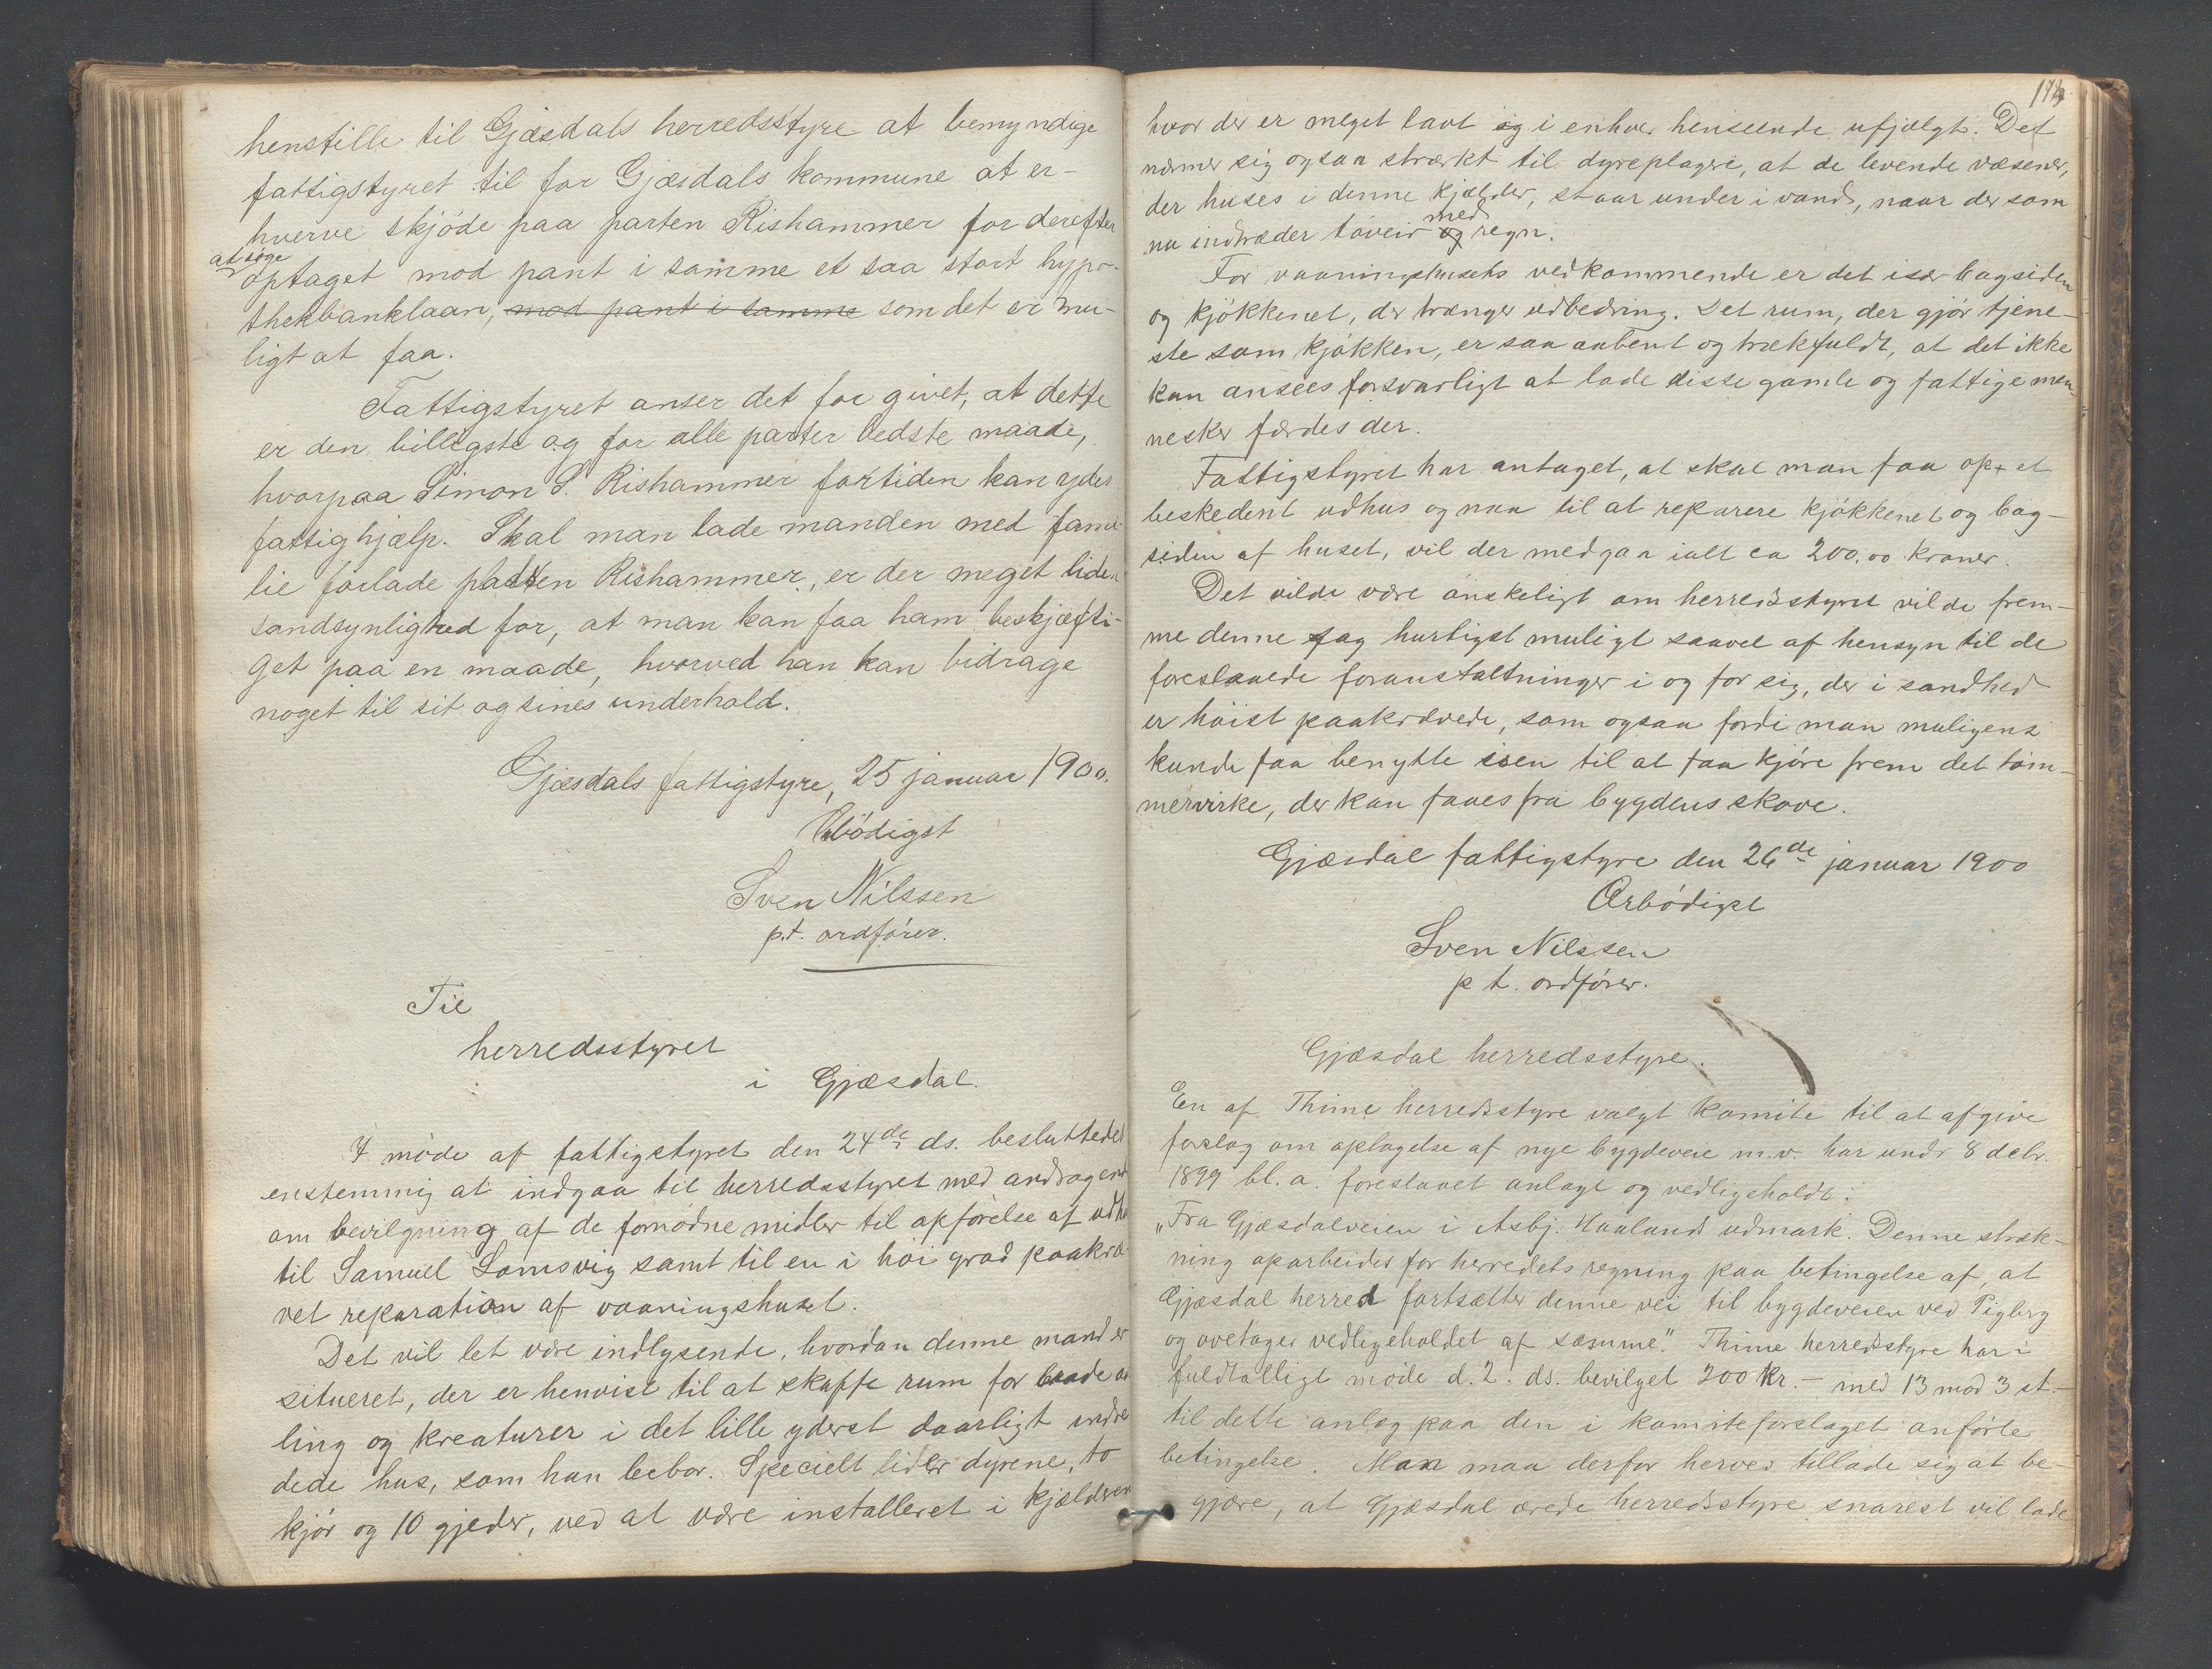 henstille til Gjæsdals herredsstyre at bemyndige
fattigstyret til for Gjæsdals kommune at er-
hverve skjöde paa parten Rishammer for derefter
at söge
optaget mod pant i samme et saa stort hypo-
thekbanklaan, mod pant i samme som det er mu-
ligt at faa.
Fattigstyret anser det for givet, at dette
er den billigste og for alle parter bedste maade,
hvorpaa Simon S. Rishammer fortiden kan ydes
fattighjælp. Skal man lade manden med fami-
lie forlade pladsen Rishammer, er der meget liden
sandsynlighed for, at man kan faa ham beskjæfti-
get paa en maade, hvorved han kan bidrage
noget til sit og sines underhold.
Gjæsdals fattigstyre, 25 januar 1900.
Ærbödigst
Sven Nilssen
p.t. ordförer.
Til
herredsstyret
i Gjæsdal.
I möde af fattigstyret den 24de ds. besluttedes
enstemmig at indgaa til herredsstyret med andragend
om bevilgning af de fornödne midler til opförelse af udhu
til Samuel Lomsvig samt til en i höi grad paakræ-
vet reparation af vaaningshuset.
Det vil let være indlysende, hvordan denne mand er
situeret, der er henvist til at skaffe rum for baade av
ling og kreaturer i det lille yderst daarligt indre
dede hus, som han bebor. Specielt lider dyrene, to
kjör og 10 gjeder, ved at være installeret i kjælderen
173
hvor der er meget lavt og i enhver henseende ufjelgt. Det
nærmer sig ogsaa stærkt til dyreplageri, at de levende væsener,
der huses i denne kjælder, staar under i vand, naar der som
med
nu indtræder töveir og regn.
For vaaningshusets vedkommende er det især bagsiden
og kjökkenet, der trænger udbedring. Det rum, der gjör tjene-
ste som kjökken, er saa aabent og trækfuldt, at det ikke
kan ansees forsvarligt at lade disse gamle og fattige men-
nesker færdes der.
Fattigstyret har antaget, at skal man faa op et
beskedent udhus og naa til at reparere kjökkenet og bag-
siden af huset, vil der medgaa ialt ca 200,00 kroner.
Det vilde være önskeligt om herredsstyret vilde frem-
me denne sag hurtigst muligt saavel af hensyn til de
foreslaaede foranstaltninger i og for sig, der i sandhed
er höist paakrævede, som ogsaa fordi man muligens
kunde faa benytte isen til at faa kjöre frem det töm-
mervirke, der kan faaes fra bygdens skove.
Gjæsdal fattigstyre den 26de januar 1900
Ærbödigst
Sven Nilssen
p t. ordförer.
Gjæsdal herredsstyre.
En af Thime herredsstyre valgt komite til at afgive
forslag om optagelse af nye bygdeveie m.v. har under 8 debr.
1899 bl.a. foreslaaet anlagt og vedligeholdt:
"Fra Gjæsdalveien i Asbj. Haalands udmark. Denne stræk-
ning oparbeides for herredets regning paa betingelse af, at
Gjæsdal herred fortsætter denne vei til bygdeveien ved Pigberg
og overtager vedligeholdet af samme". Thime herredsstyre har i
fuldtalligt möde d. 2. ds. bevilget 200 kr.- med 13 mod 3 st.-
til dette anlæg paa den i komiteforslaget anförte
betingelse. Man maa derfor herved tillade sig at be-
gjære, at Gjæsdal ærede herredsstyre snarest vil lade